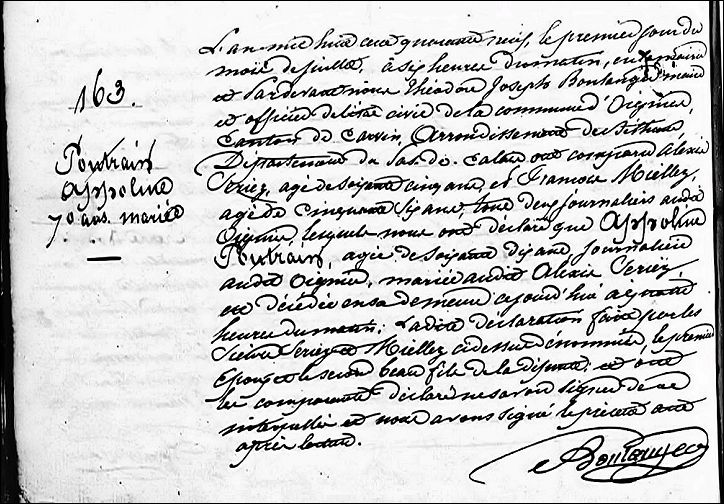 163.
Poutrain
Appoline
70 ans. mariée
L'an mil huit cent quarante neuf, le premier jour du
mois de juillet, à six heures du matin, en la mairie
et pardevant nous Théodore Joseph Boulanger maire
et officier de l'état civil de la commune d'Oignies,
Canton de Carvin, Arrondissement de Béthune
Département du Pas-de-Calais ont comparu Alexis
Seriez, agé de soixante cinq ans, et François Miellez,
agé de cinquante six ans, tous deux journaliers audit
Oignies, lesquels nous ont déclaré que Appoline
Poutrain, agée de soixante dix ans, journalière
audit Oignies, mariée audit Alexis Seriez,
est décédée en sa demeure aujourd'hui à quatre
heures du matin; La dite déclaration faite par les
Sieurs Seriez et Miellez cidessus dénommés, le premier
époux et le second beau fils de la défunte; et ont
les comparants déclaré ne savoir signer de ce
interpellés et nous avons signé le présent acte
après lecture.
Boulanger